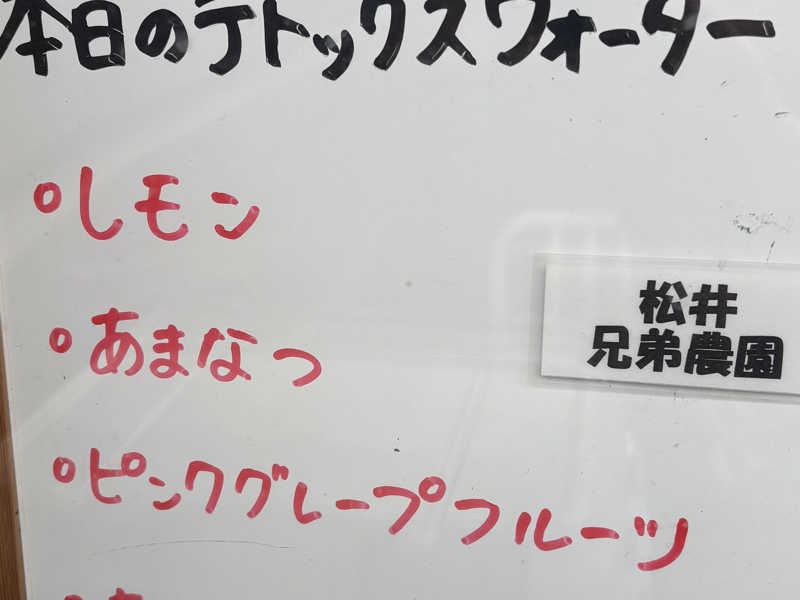 本日のデトックスウォーター
°レモン
°あまなつ
°ピンクグレープフルーツ
松井
兄弟農園